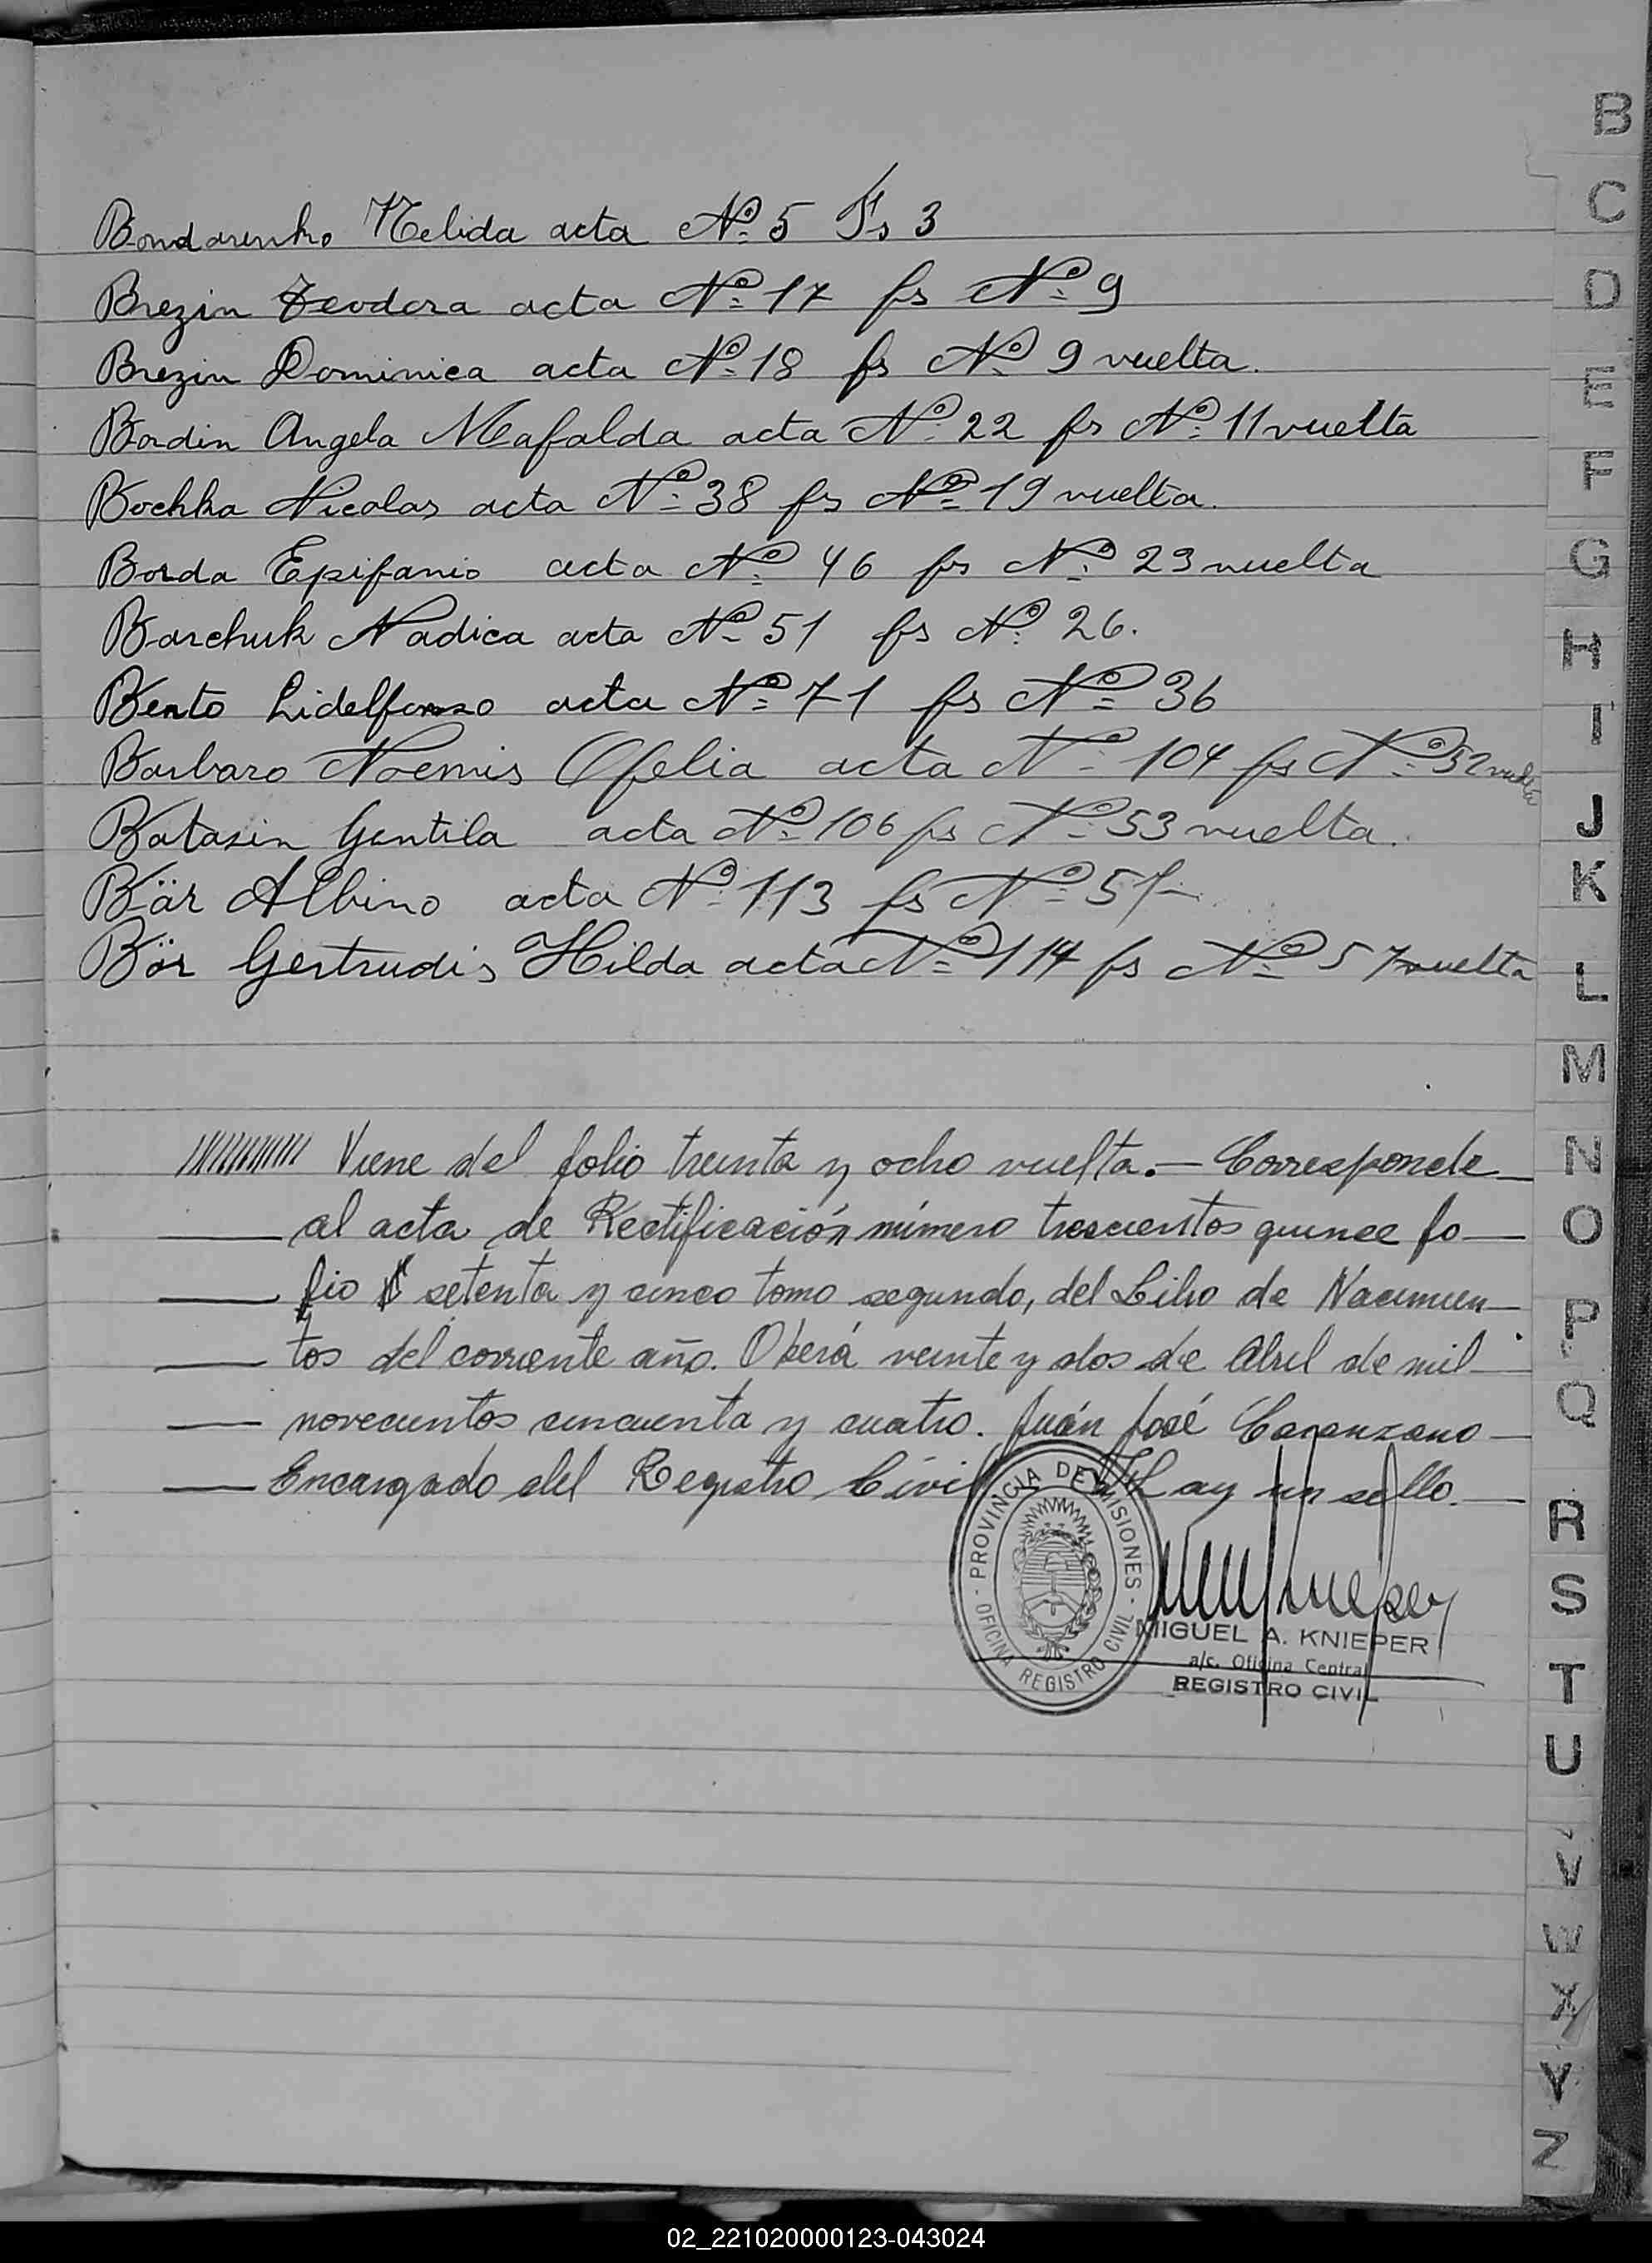 Bondarenko Nelida acta Nº 5 Fs 3
Brezin Teodora acta Nº 17 fs Nº 9
Brezin Dominica acta Nº 18 fs Nº 9 vuelta.
Bordin Angela Mafalda acta Nº 22 fs Nº 11 vuelta
Bochka Nicolas acta Nº 38 fs Nº 19 vuelta.
Borda Epifanio acta Nº 46 fs Nº 23 vuelta
Barchuk Nadica acta Nº 51 fs Nº 26.
Bento Lidelfonso acta Nº 71 fs Nº 36
Barbaro Noemis Ofelia acta Nº 104 fs Nº 52 vuelta
Batasin Gentila acta Nº 106 fs Nº 53 vuelta.
Bär Albino acta Nº 113 fs Nº 57
Bär Gertrudis Hilda acta Nº 114 fs Nº 57 vuelta
Viene del folio treinta y ocho vuelta.— Corresponde
al acta de Rectificación número trescientos quince fo—
lio setenta y cinco tomo segundo, del Libro de Nacimien—
tos del corriente año. Oberá veinte y dos de Abril de mil
novecientos cincuenta y cuatro. Juán José
Encargado del Registro Civil Hay un sello.
PROVINCIA DE MISIONES
OFICINA REGISTRO CIVIL
MIGUEL A. KNIEPER
a/c. Oficina Central
REGISTRO CIVIL
B
C
D
E
F
G
H
I
J
K
L
M
N
O
P
Q
R
S
T
U
V
W
X
Y
Z
02_221020000123-043024